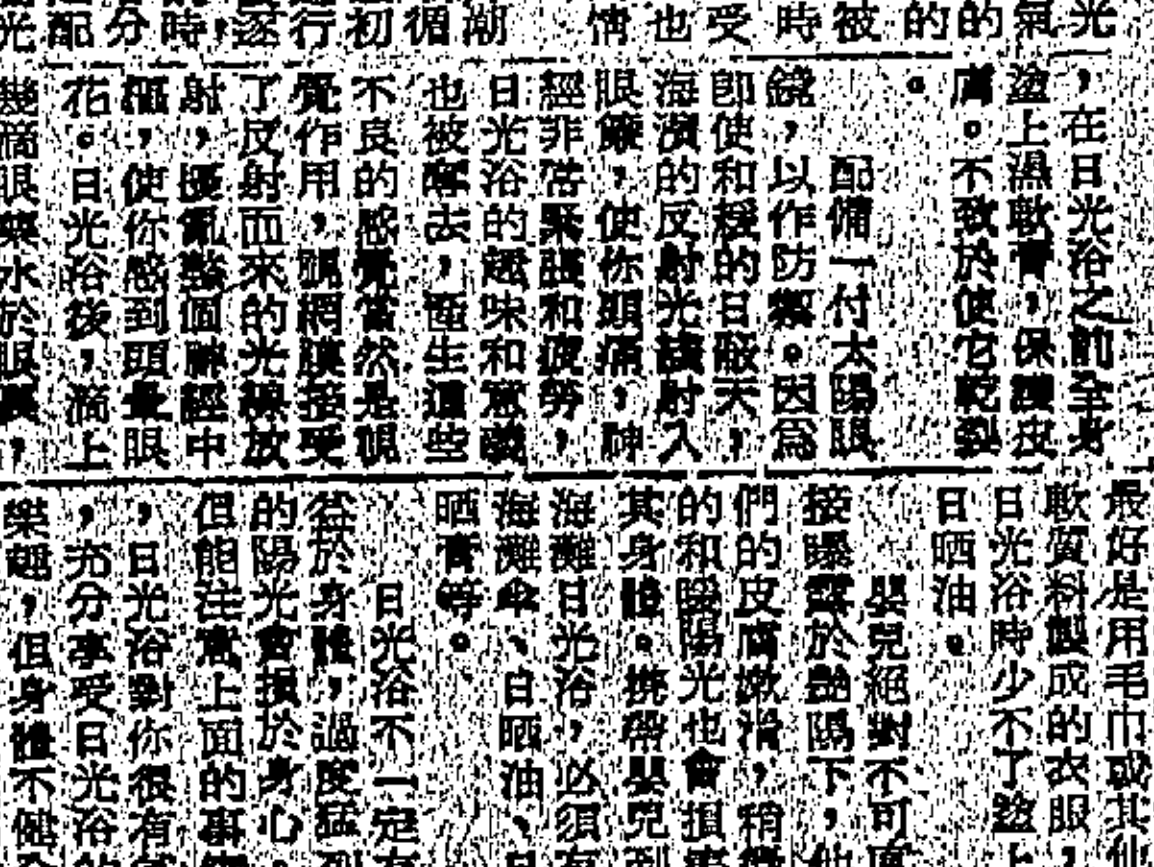 光
氣
的
的
被
時
受
也
情
潮
循
初
行
遂
時,
分
配
光
,在日光浴之前全身
塗上濕軟膏,保護皮
膚。不致於使它乾裂
。
配備一付太陽眼
鏡,以作防禦。因爲
卽使和緩的日蔽天,
海濱的反射光線射入
眼簾,使你頭痛,神
經非常緊張和疲勞,
日光浴的趣味和意義
也被奪去,產生這些
不良的感覺當然是視
覺作用,視網膜接受
了反射而來的光線放
射,擾亂整個神經中
樞,使你感到頭暈眼
花。日光浴後,滴上
幾滴眼藥水於眼裏,
最好是用毛巾或其他
軟質料製成的衣服
日光浴時少不了塗上
日晒油。
嬰兒絕對不可直
接曝露於艷陽下,他
們的皮膚嫩滑,稍微
的和暖陽光也會損害
其身體。携帶嬰兒到
海灘日光浴,必須有
海灘傘、日晒油、日
晒膏等。
日光浴不一定有
益於身體,過度猛烈
的陽光會損於身心,
但能注意上面的事
,日光浴對你很有
,充分享受日光浴的
樂趣,但身體不健全